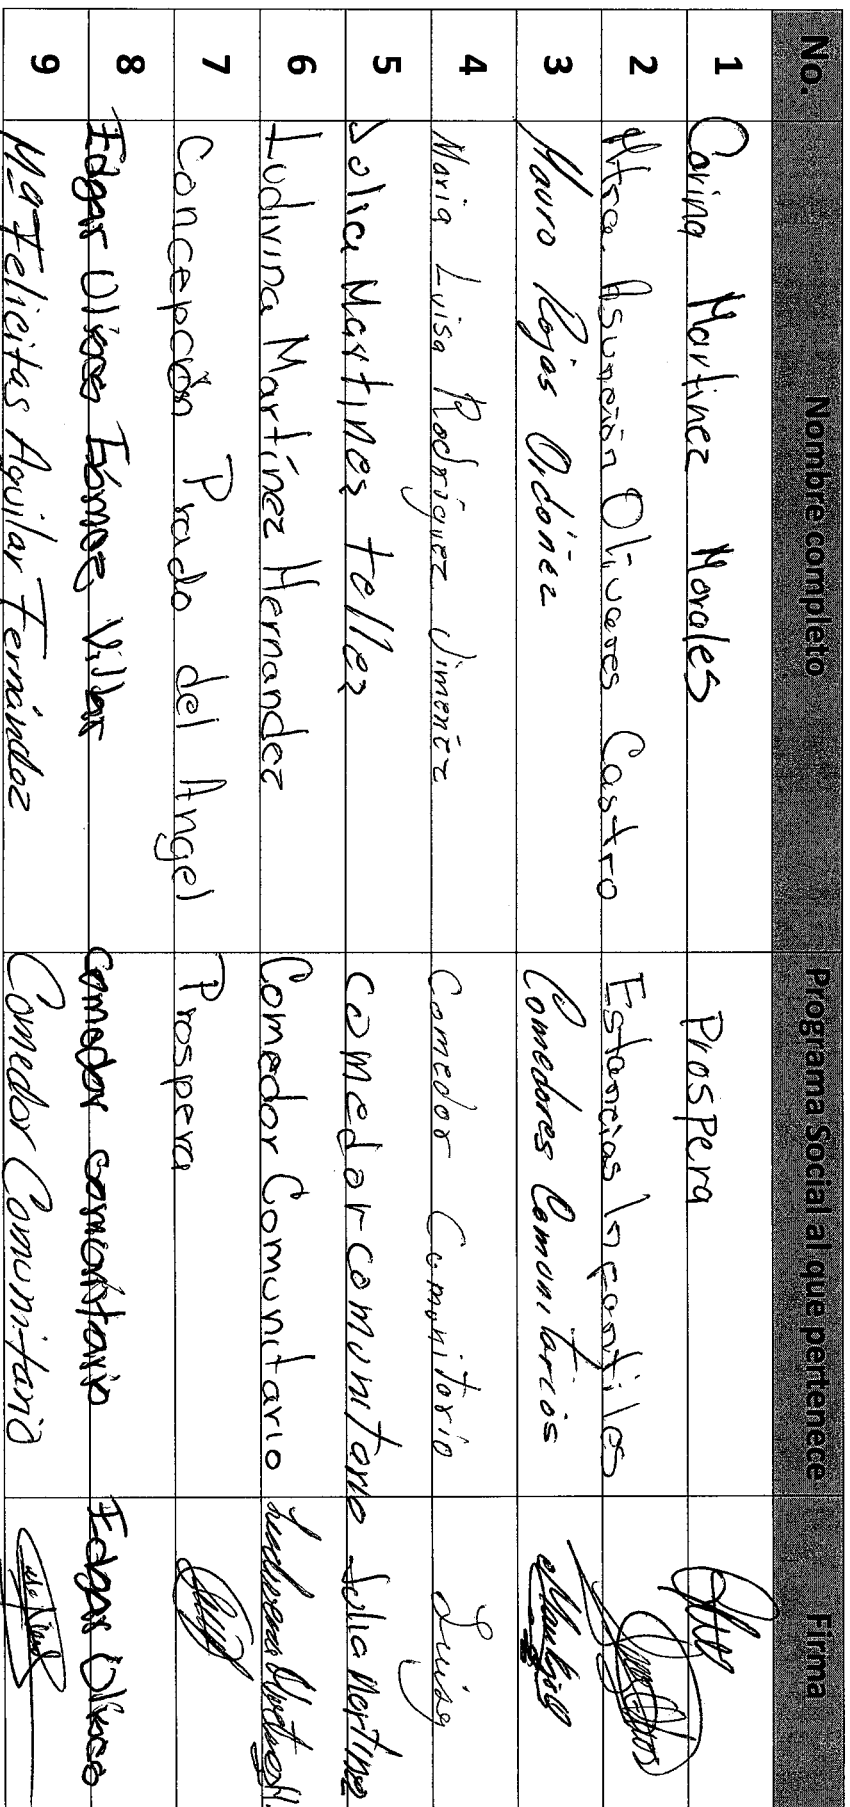 No. Nombre completo Programa Social al que pertenece Firma
1 Carina Martinez Morales Prospera
2 Mtra. Asunción Olivares Castro Estancias Infantiles
3 Mauro Rojas Ordóñez Comedores Comunitarios
4 Maria Luisa Rodríguez Jimenéz Comedor Comunitario Luisa
5 Julia Martines tellez comedor comunitario Julia Martinez
6 Ludivina Martínez Hernandez Comedor Comunitario
7 Concepción Prado del Angel Prospera
8 Edgar Villar comedor comunitario Edgar
9 Ma Felicitas Aguilar Fernández Comedor Comunitario